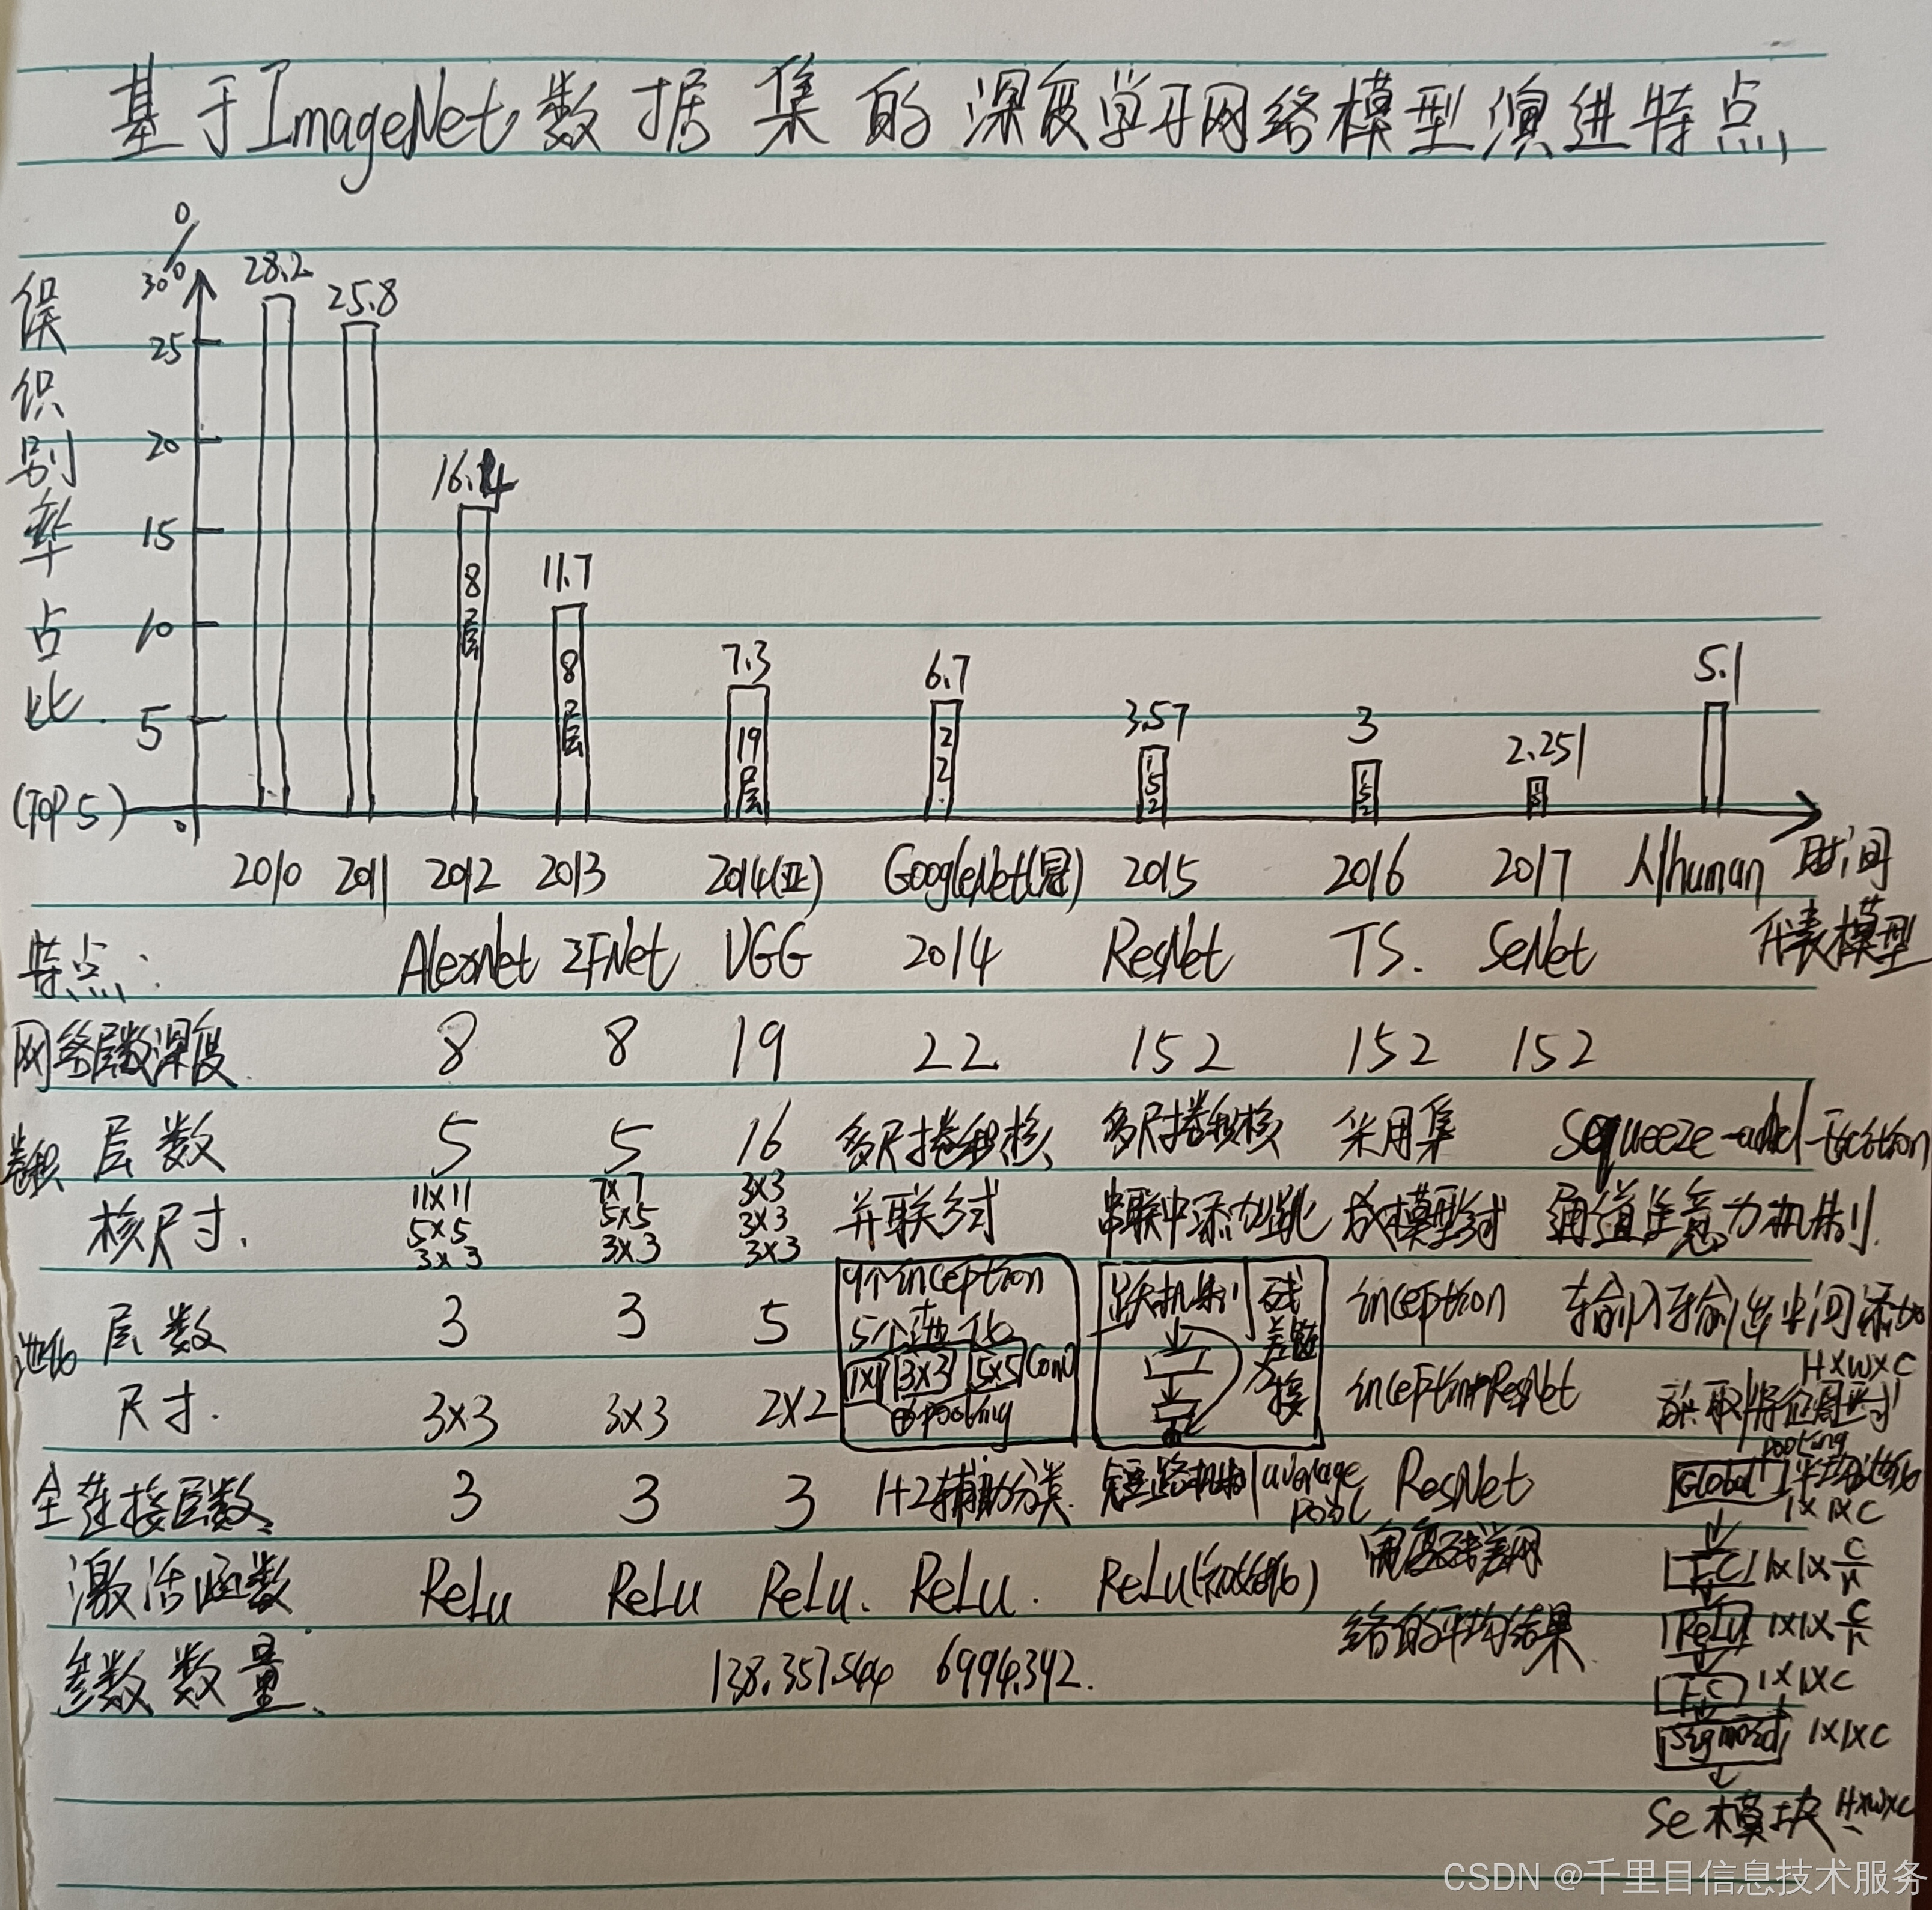 基于ImageNet数据集的深度学习网络模型演进特点
%
30
误识别率占比
(TOP 5)
25
20
15
10
5
0
28.2
25.8
16.4
11.7
7.3
6.7
3.57
3
2.251
5.1
8层
8层
19层
22
152
152
2010 2011 2012 2013 2014(亚) GoogleNet(冠) 2015 2016 2017 人/human 时间
特点: AlexNet ZFNet VGG 2014 ResNet TS. SeNet 代表模型
网络层数深度 8 8 19 22 152 152 152
卷积 层数 5 5 16 多尺寸卷积核、 多尺寸卷积核 采用集 Squeeze-and-
核尺寸. 11×11 7×7 3×3 并联方式 串联中添加跳 成模型方式 通道注意力机制.
5×5 5×5 3×3
3×3 3×3 3×3
池化 层数 3 3 5 9个inception 跃机制 残差 inception 在输入与输出中间添加
5个池化
1×1 3×3 5×5 Conv
尺寸. 3×3 3×3 2×2 pooling 接 inception ResNet H×W×C
全连接层数 3 3 3 1+2辅助分类 短路机制 average pool ResNet
pooling
Global 平均池化
1×1×C
激活函数 ReLu ReLu ReLu. ReLu. ReLu 残差网
FC 1×1×C/r
络的平均结果 ReLu 1×1×C/r
参数数量 138.357.544 6994.392.
FC 1×1×C
Sigmoid 1×1×C
Se模块 H×W×C
CSDN @千里目信息技术服务